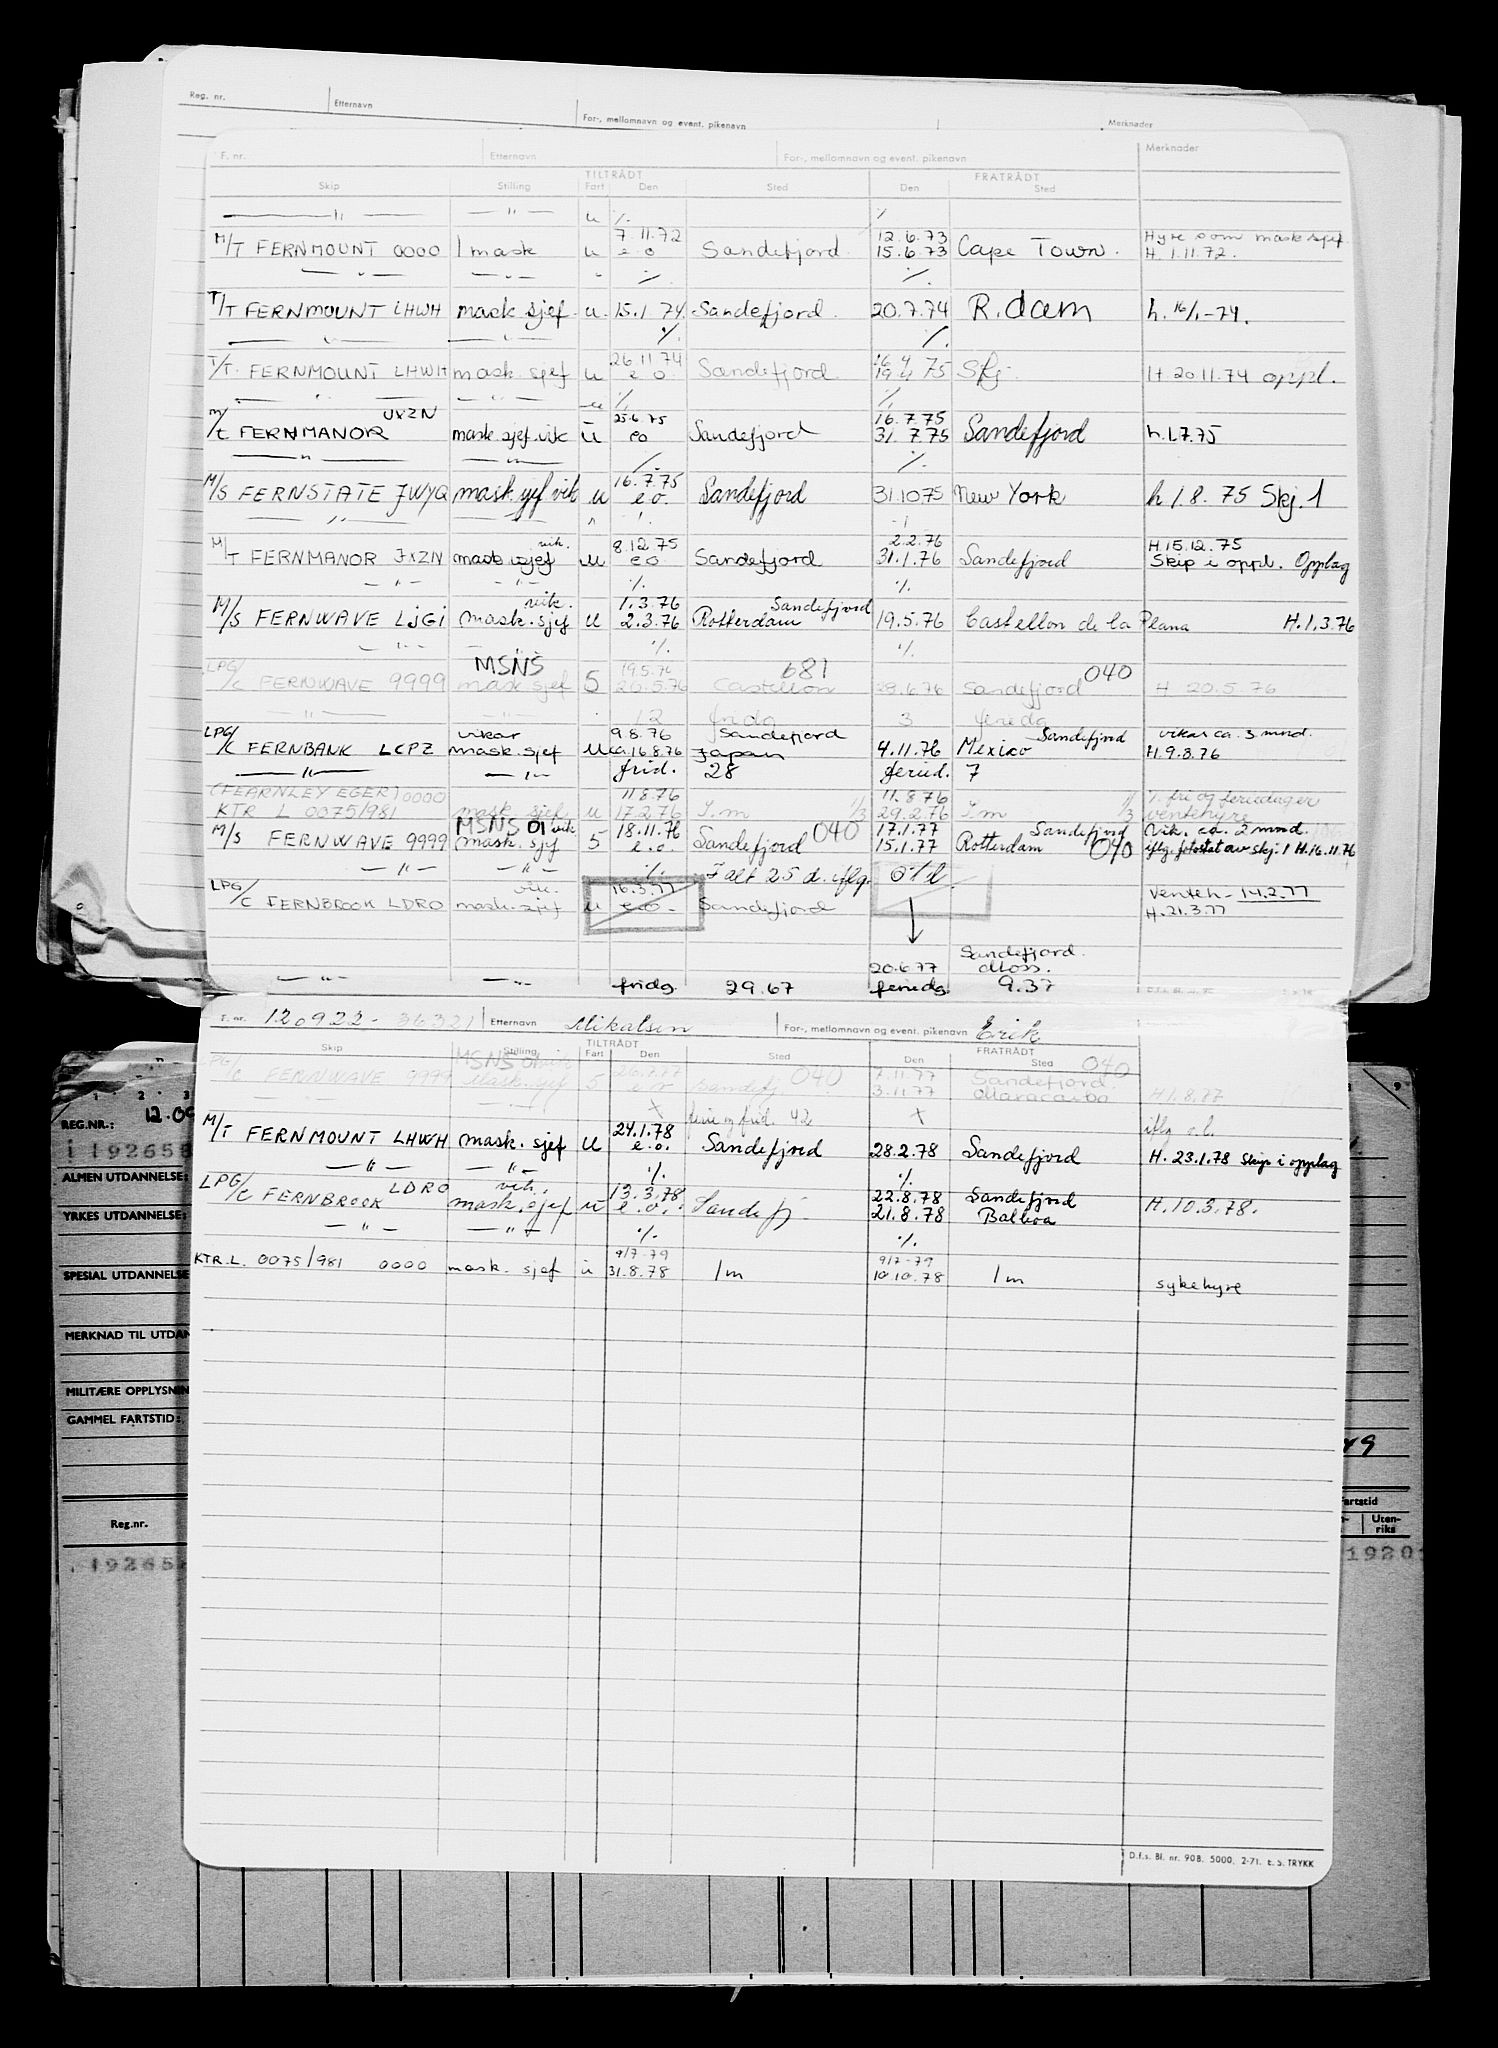 Reg. nr. Etternavn For-, mellomnavn og event. pikenavn Merknader
F. nr. Etternavn For-, mellomnavn og event. pikenavn Merknader
TILTRÅDT FRATRÅDT
Skip Stilling Fart Den Sted Den Sted
—"— —"— u % %
7.11.72 12.6.73 Hyre som mask sjef.
M/T FERNMOUNT 0000 1 mask u e o Sandefjord. 15.6.73 Cape Town. H. 1.11.72.
—"— —"— " % %
T/T FERNMOUNT LHWH mask sjef. u. 15.1 74. Sandefjord. 20.7.74 R.dam h. 16/1-74.
—"— —"— % %
26.11.74 16 4
T/T. FERNMOUNT LHWH mask. sjef u e o. Sandefjord 19 4 75 Sfj. H 20.11.74 oppl.
—"— —"— u % %
JXZN 25.6.75 16.7.75
M/t FERNMANOR mask sjef. vik u eo Sandefjord 31.7.75 Sandefjord h.1.7.75
—"— —"— % %
16.7.75
M/S FERNSTATE JWYQ mask sjef vik u e.o. Sandefjord 31.10.75 New York h 1.8.75 Skj. 1
—"— —"— " % %
vik. 8.12.75 2.2.76 H.15.12.75
M/T FERNMANOR JXZN mask sjef u eo Sandefjord 31.1.76 Sandefjord Skip i oppl. Opplag
—"— —"— % %
vik. 1.3.76 Sandefjord
M/S FERNWAVE LJGI mask. sjef u 2.3.76 Rotterdam 19.5.76 Castellon de la Plana H.1.3.76
—"— — % %
MSNS 19.5.76 681 040
LPG/C FERNWAVE 9999 mask sjef 5 20.5.76 Castellon 28.6.76 Sandefjord H 20.5.76
—"— —"— 12 frida 3 ferieda
vikar 9.8.76 Sandefjord Sandefjord vikar ca. 3 mnd.
LPG/C FERNBANK LCPZ mask. sjef u ca.16.8.76 Japan 4.11.76 Mexico H.9.8.76
—"— —"— frid. 28 feried. 7
(FEARNLEY EGER) 0000 11 8.76 11.8.76 % fri og feriedager
KTR L 0075/981 mask sjef u 17.2.76 I.m 1/3 29.2.76 I.m 1/3 ventehyre
MSNS 01 vik. 18.11.76 040 17.1.77 Sandefjord Vik. ca. 2 mnd.
M/S FERNWAVE 9999 mask. sjef 5 e.o. Sandefjord 15.1.77 Rotterdam 040 iflg. fotostat av skj. 1 H.16.11.76
—"— —"— % I alt 25 d. iflg. o/l.
vik. 16.3.77 Venteh - 14.2.77
LPG/C FERNBROOK LDRO mask. sjef u e.o - Sandefjord H.21.3.77
Sandefjord.
20.6.77 Moss.
—"— —"— fridg. 29.67 feriedg. 9.37
F. nr. 120922 - 36321 Etternavn Mikalsen For-, mellomnavn og event. pikenavn Erik
TILTRÅDT FRATRÅDT
Skip Stilling Fart Den Sted Den Sted
MSNS 01 vik 26.7.77 040 1.11.77 Sandefjord. 040
LPG/C FERNWAVE 9999 Mask. sjef 5 e o Sandefj 3.11.77 Maracaibo H 1.8.77
—"— + ferie og frid. 42 + iflg o.l.
24.1.78
M/T FERNMOUNT LHWH mask. sjef u e.o. Sandefjord 28.2.78 Sandefjord H. 23.1.78 Skip i opplag
—"— —"— % %
LDRO vik. 13.3.78 22.8.78 Sandefjord
LPG/C FERNBROOK mask. sjef u e.o. Sandefj. 21.8.78 Balboa H.10.3.78.
—"— —"— % %
9/7-79 9/7-79
KTR.L. 0075/981 0000 mask. sjef u 31.8.78 1m 10.10.78 1m sykehyre
D.f.s. Bl. nr. 908. 5000. 2-71. E. S. TRYKK
REG.NR.: 12.09
192658
ALMEN UTDANNELSE:
YRKES UTDANNELSE:
SPESIAL UTDANNELSE
MERKNAD TIL UTDAN
MILITÆRE OPPLYSNIN
GAMMEL FARTSTID:
49
artstid
Reg.nr. Uten-
riks
19265 1920